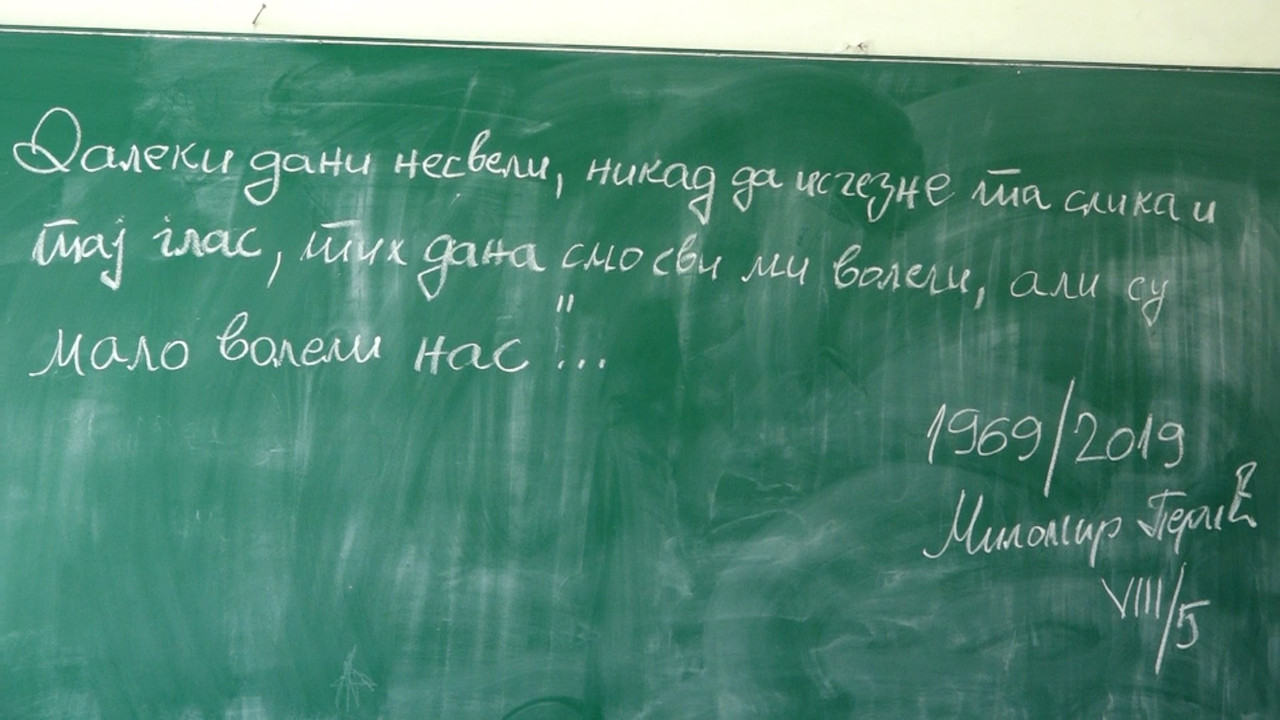 Далеки дани несвели, никад да исчезне та слика и
тај глас, тих дана смо сви ми волели, али су
мало волели нас"...
1969/2019
Миломир
VIII/5